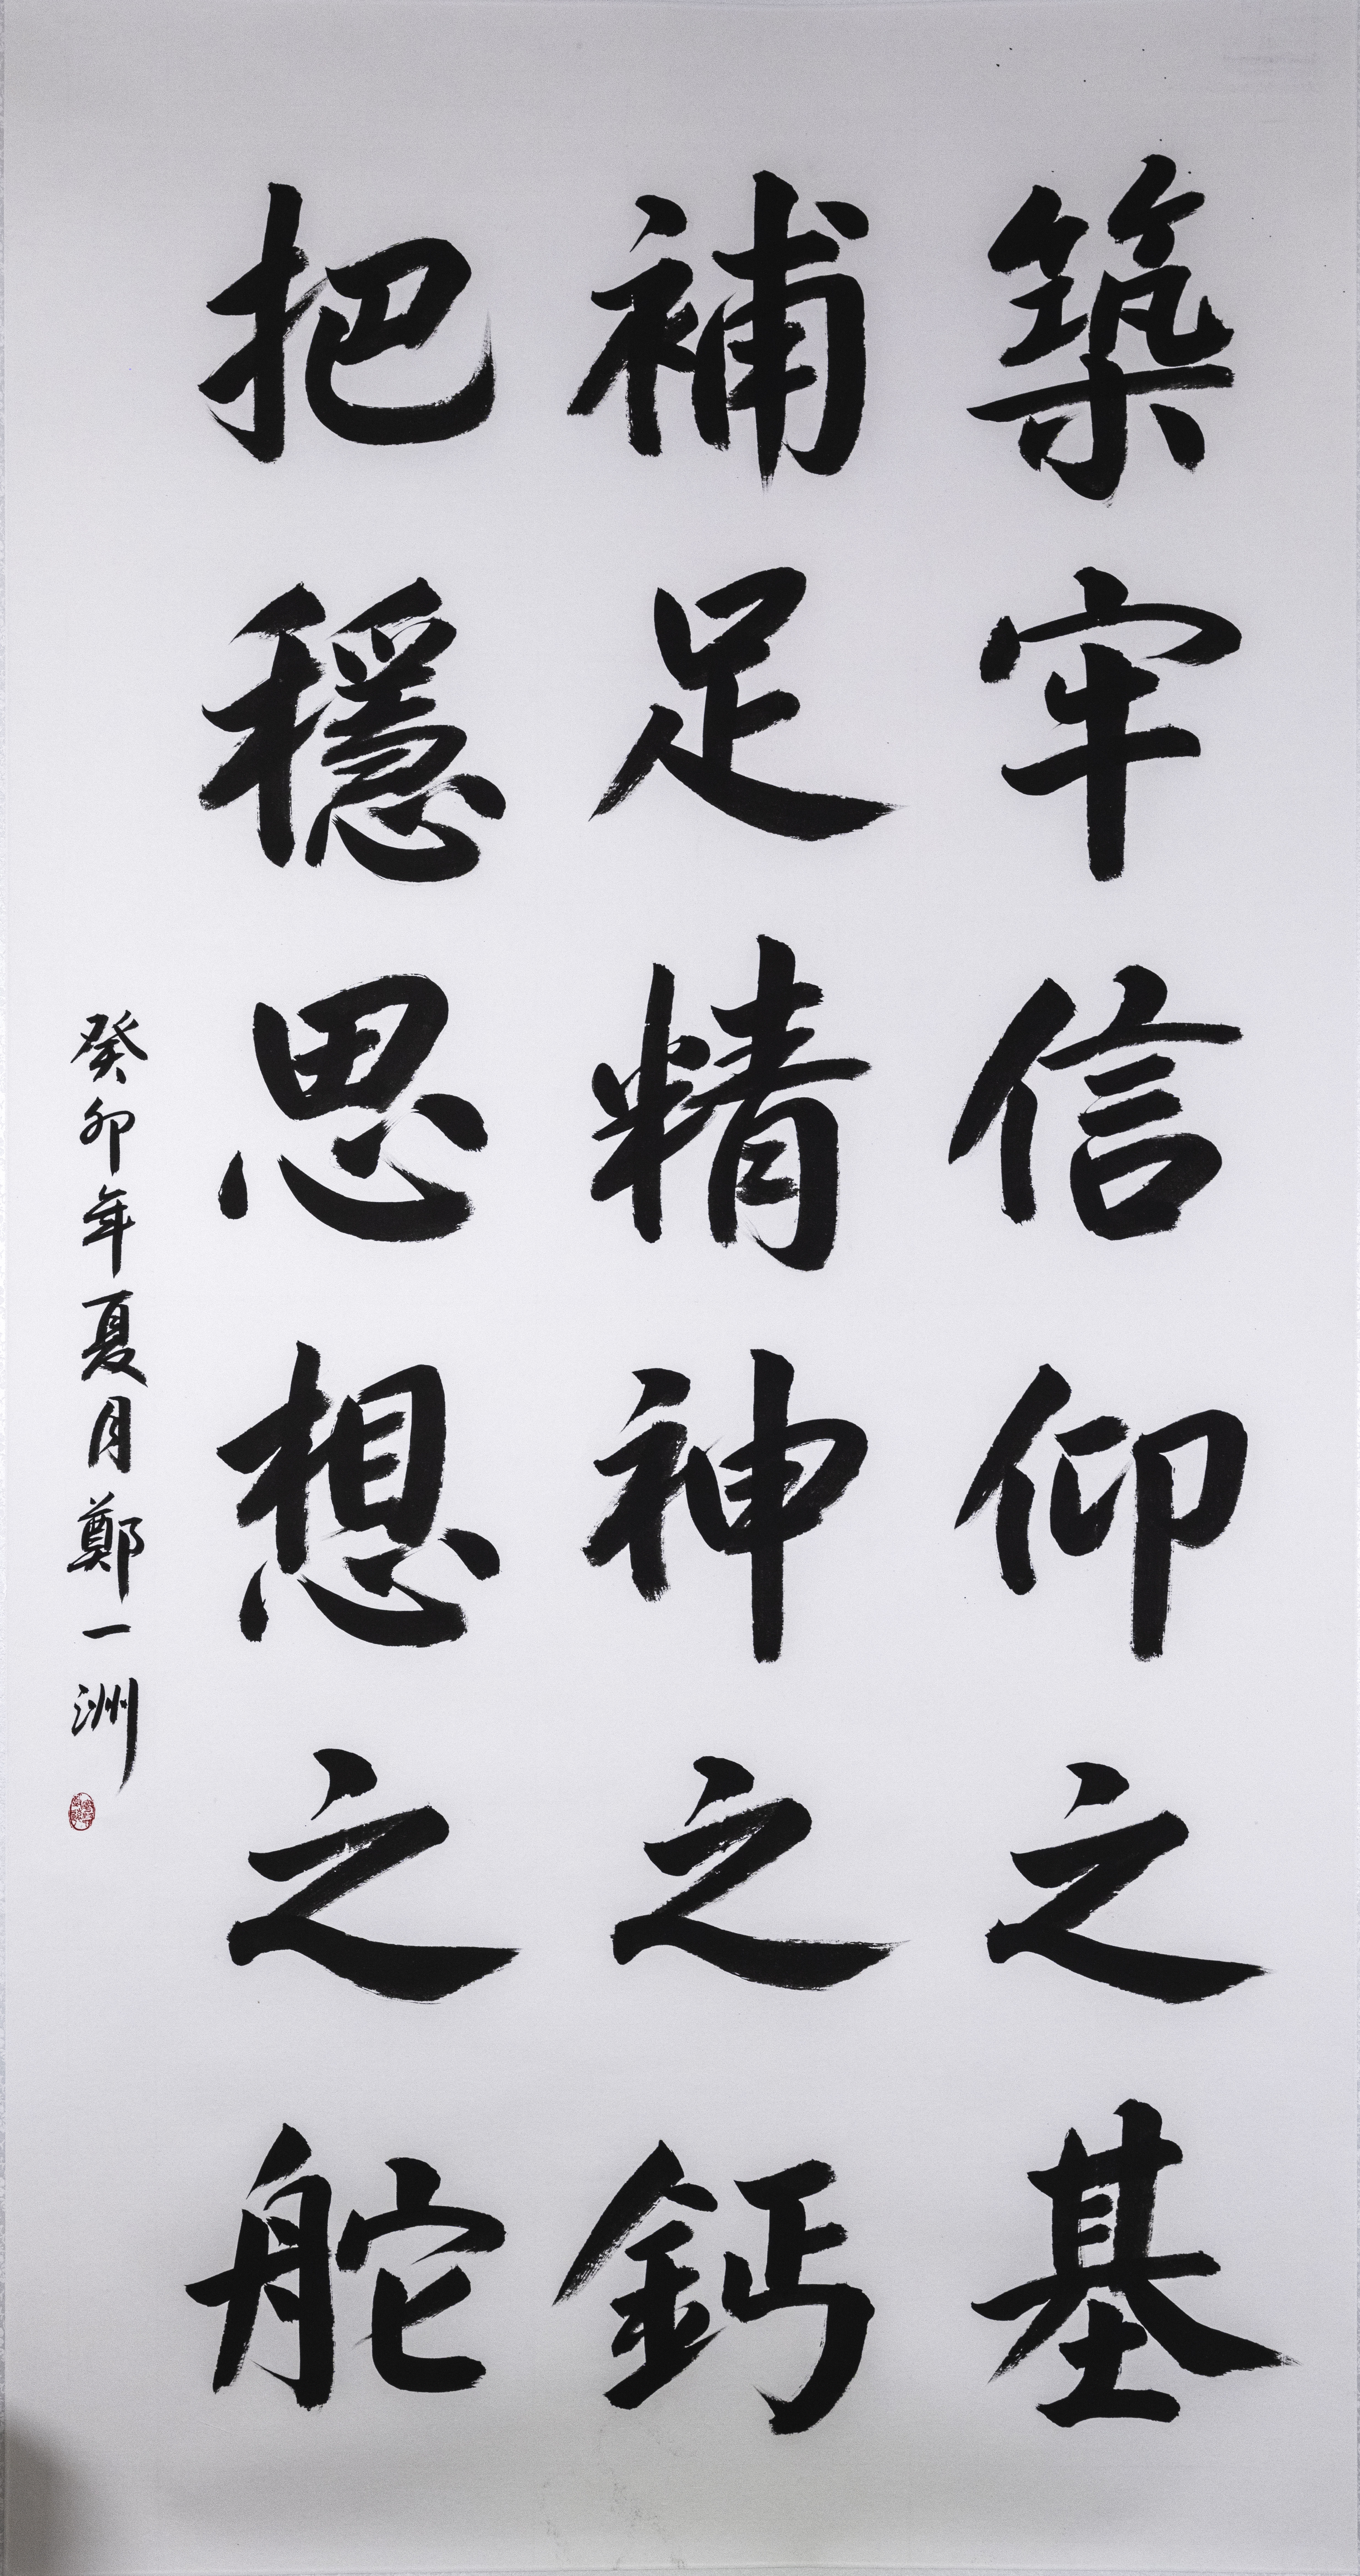 築牢信仰之基
補足精神之鈣
把穩思想之舵
癸卯年夏月鄭一洲